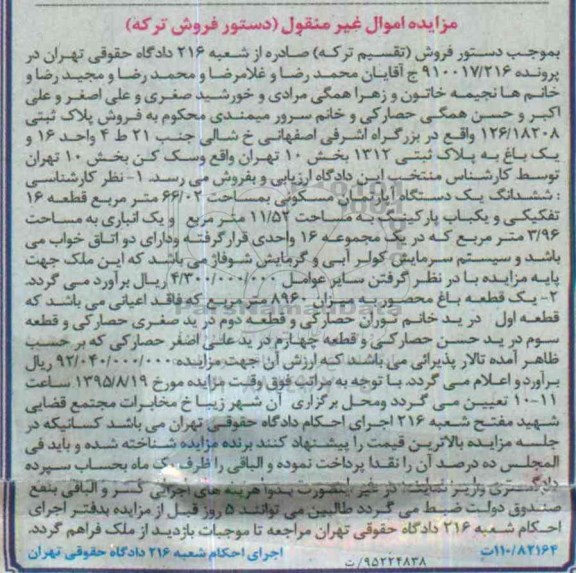 مزایده اموال غیر منقول (دستور فروش ترکه)
بموجب دستور فروش (تقسیم ترکه) صادره از شعبه ۲۱۶ دادگاه حقوقی تهران در
پرونده ۹۱۰۰۱۷/۲۱۶ ج آقایان محمد رضا و غلامرضا و محمد رضا و مجید رضا و
خانم ها نجیمه خاتون و زهرا همگی مرادی و خورشید صغری و علی اصغر و علی
اکبر و حسن همگی حصارکی و خانم سرور میمندی محکوم به فروش پلاک ثبتی
۱۲۶/۱۸۲۰۸ واقع در بزرگراه اشرفی اصفهانی خ شالی جنب ۲۱ ط ۴ واحد ۱۶ و
یک باغ به پلاک ثبتی ۱۳۱۲ بخش ۱۰ تهران واقع وسک کن بخش ۱۰ تهران
توسط کارشناس منتخب این دادگاه ارزیابی و بفروش می رسد. ۱- نظر کارشناسی
: ششدانگ یک دستگاه آپارتمان مسکونی بمساحت ۶۶/۰۲ متر مربع قطعه ۱۶
تفکیکی و یکباب پارکینگ به مساحت ۱۱/۵۲ متر مربع و یک انباری به مساحت
۳/۹۶ متر مربع که در یک مجموعه ۱۶ واحدی قرار گرفته ودارای دو اتاق خواب می
باشد و سیستم سرمایش کولر آبی و گرمایش شوفاژ می باشد که این ملک جهت
پایه مزایده با در نظر گرفتن سایر عوامل ۴/۳۰۰/۰۰۰/۰۰۰ ریال برآورد می گردد.
۲- یک قطعه باغ محصور به میزان ۸۹۶۰ متر مربع که فاقد اعیانی می باشد که
قطعه اول در ید خانم توران حصارکی و قطعه دوم در ید صغری حصارکی و قطعه
سوم در ید حسن حصارکی و قطعه چهارم در ید علی اصغر حصارکی که بر حسب
ظاهر آمده تالار پذیرائی می باشد که ارزش آن جهت مزایده ۹۲/۰۴۰/۰۰۰/۰۰۰ ریال
برآورد و اعلام می گردد. با توجه به مراتب فوق وقت مزایده مورخ ۱۳۹۵/۸/۱۹ ساعت
۱۰-۱۱ تعیین می گردد ومحل برگزاری آن شهر زیبا خ مخابرات مجتمع قضایی
شهید مفتح شعبه ۲۱۶ اجرای احکام دادگاه حقوقی تهران می باشد کسانیکه در
جلسه مزایده بالاترین قیمت را پیشنهاد کنند برنده مزایده شناخته شده و باید فی
المجلس ده درصد آن را نقدا پرداخت نموده و الباقی را ظرف یک ماه بحساب سپرده
دادگستری واریز نمایند در غیر اینصورت بدوا هزینه های اجرایی کسر و الباقی بنفع
صندوق دولت ضبط می گردد طالبین می توانند ۵ روز قبل از مزایده بدفتر اجرای
احکام شعبه ۲۱۶ دادگاه حقوقی تهران مراجعه تا موجبات بازدید از ملک فراهم گردد.
۱۱۰/۸۲۱۶۴ت اجرای احکام شعبه ۲۱۶ دادگاه حقوقی تهران
۹۵۲۲۴۸۳۸/ت